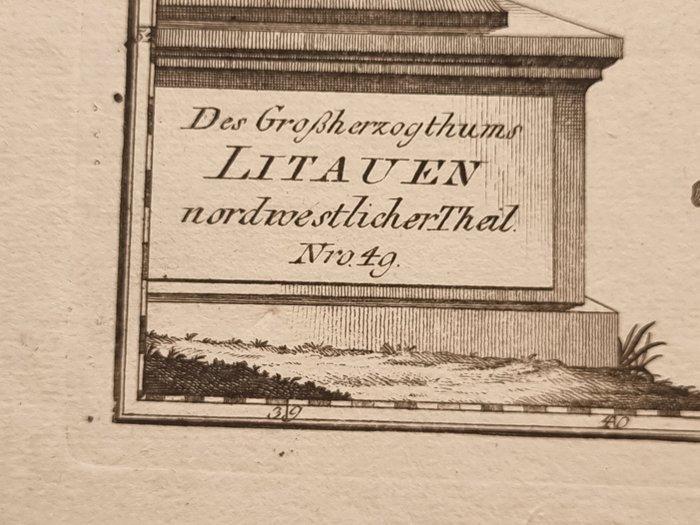 54
Des Großherzogthums
LITAUEN
nordwestlicher Theil.
Nro. 49.
39
40